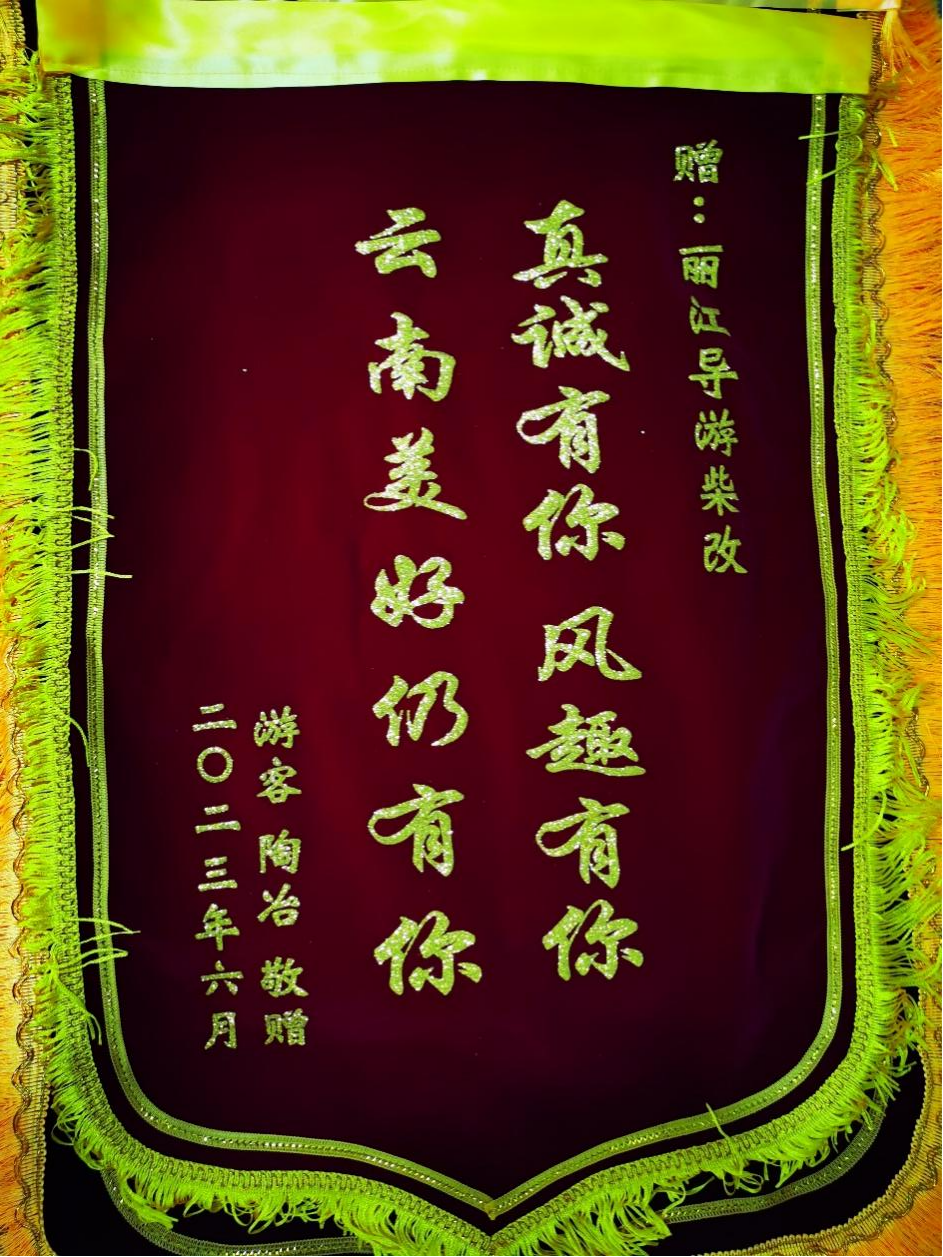 赠：丽江导游柴改
真诚有你 风趣有你
云南美好仍有你
游客 陶冶 敬赠
二〇二三年六月